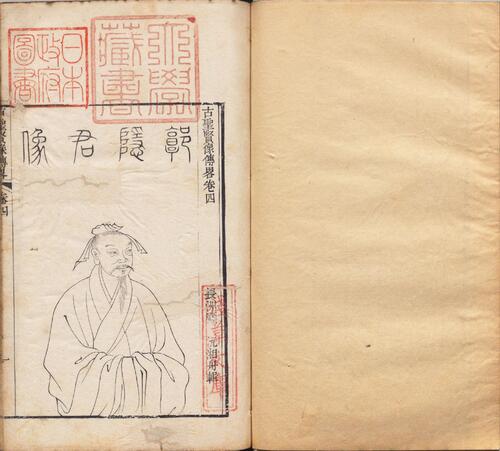 大學
藏書
日本
政府
圖書
古聖賢像傳畧卷四
長洲顧沅湘舟輯
郭隱君像
古聖賢像傳畧
卷四